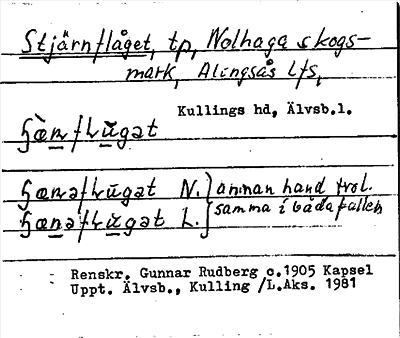 Stjärnflåget, tp, Nolhaga skogs-
mark, Alingsås lfs,
Kullings hd, Älvsb.l.
N. } annan hand trol.
L. } samma i båda fallen
Renskr. Gunnar Rudberg c.1905 Kapsel
Uppt. Älvsb., Kulling /L.Aks. 1981